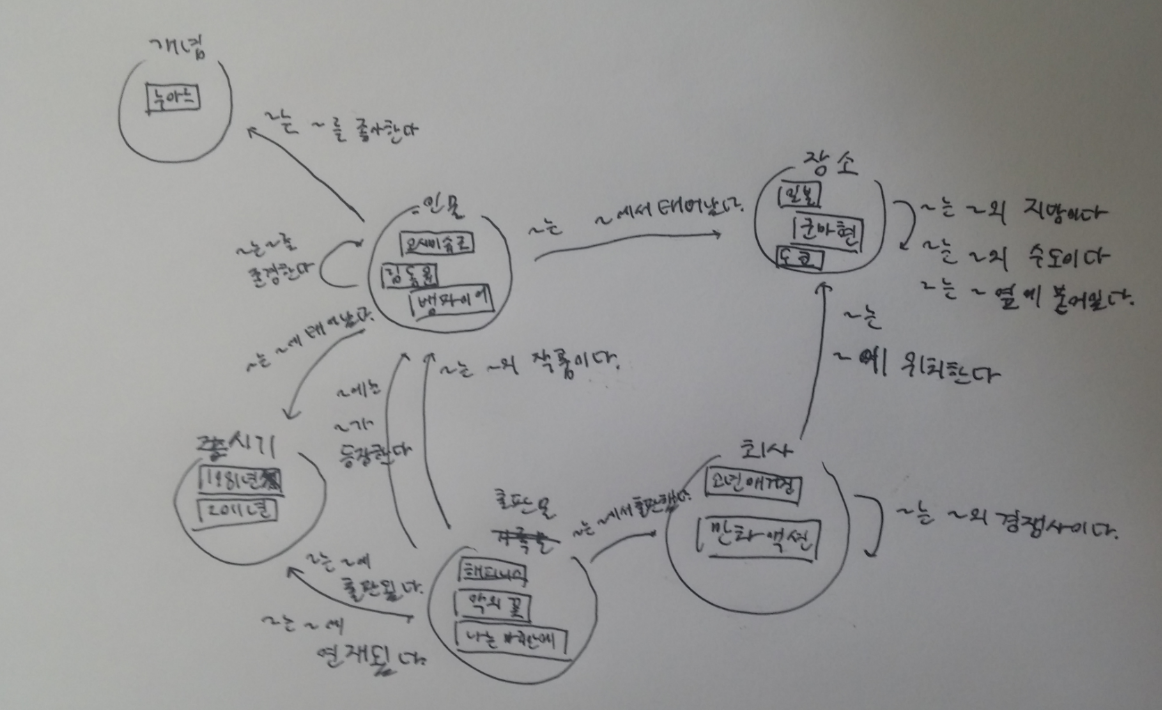 개념
누아느
~는 ~를 졸사한다
인물
오세미슈조
김동윤
뱀파이어
~는 ~를
존경한다
~는 ~에서 태어났다.
장소
일본
군마현
도쿄
~는 ~의 지방이다
~는 ~의 수도이다
~는 ~옆에 붙어있다.
~는 ~에 태어났다.
~에는
~가
등장한다
~는 ~의 작품이다.
~는
~에 위치한다
시기
1981년
2011년
출판물
해피니스
악의 꽃
나는 마리안에
~는 ~에서 출판했다.
회사
소년매거진
만화액션
~는 ~의 경쟁사이다.
~는 ~에
출판됐다.
~는 ~에
연재됐다.